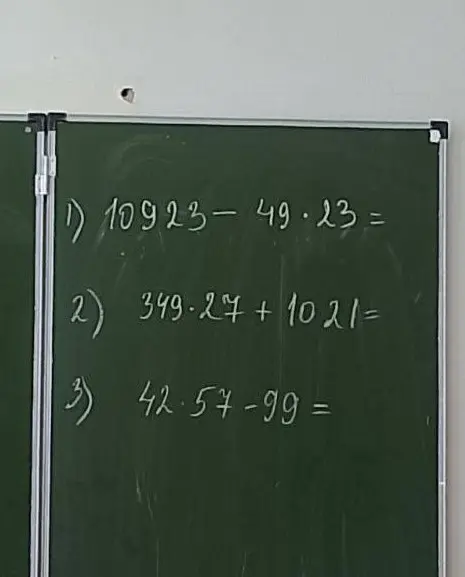 1) 10923 - 49 · 23 =
2) 349 · 27 + 1021 =
3) 42 · 57 - 99 =